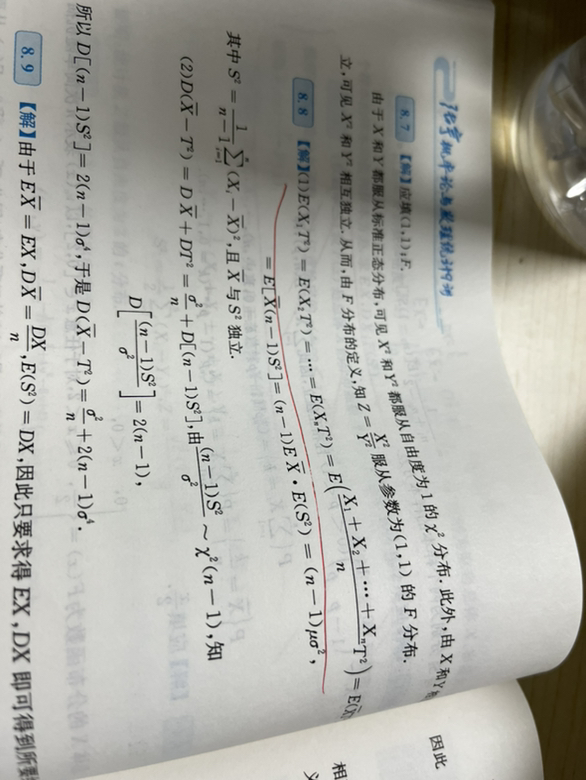 8.7 【解】应填(1,1);F.
由于 X 和 Y 都服从标准正态分布,可见 X² 和 Y² 都服从自由度为 1 的 χ² 分布. 此外,由 X 和 Y
立,可见 X² 和 Y² 相互独立. 从而,由 F 分布的定义,知 Z = X²/Y² 服从参数为(1,1) 的 F 分布.
8.8 【解】(1)E(X₁T²) = E(X₂T²) = … = E(XₙT²) = E((X₁ + X₂ + … + Xₙ)/n T²) = E(X̄
= E[X̄(n−1)S²] = (n−1)EX̄ · E(S²) = (n−1)μσ²,
其中 S² = 1/(n−1) ∑ᵢ₌₁ⁿ (Xᵢ − X̄)²,且 X̄ 与 S² 独立.
(2)D(X̄ − T²) = DX̄ + DT² = σ²/n + D[(n−1)S²],由 (n−1)S²/σ² ~ χ²(n−1),知
D[(n−1)S²/σ²] = 2(n−1),
所以 D[(n−1)S²] = 2(n−1)σ⁴,于是 D(X̄ − T²) = σ²/n + 2(n−1)σ⁴.
8.9 【解】由于 EX̄ = EX,DX̄ = DX/n,E(S²) = DX,因此只要求得 EX,DX 即可得到所
因此
相